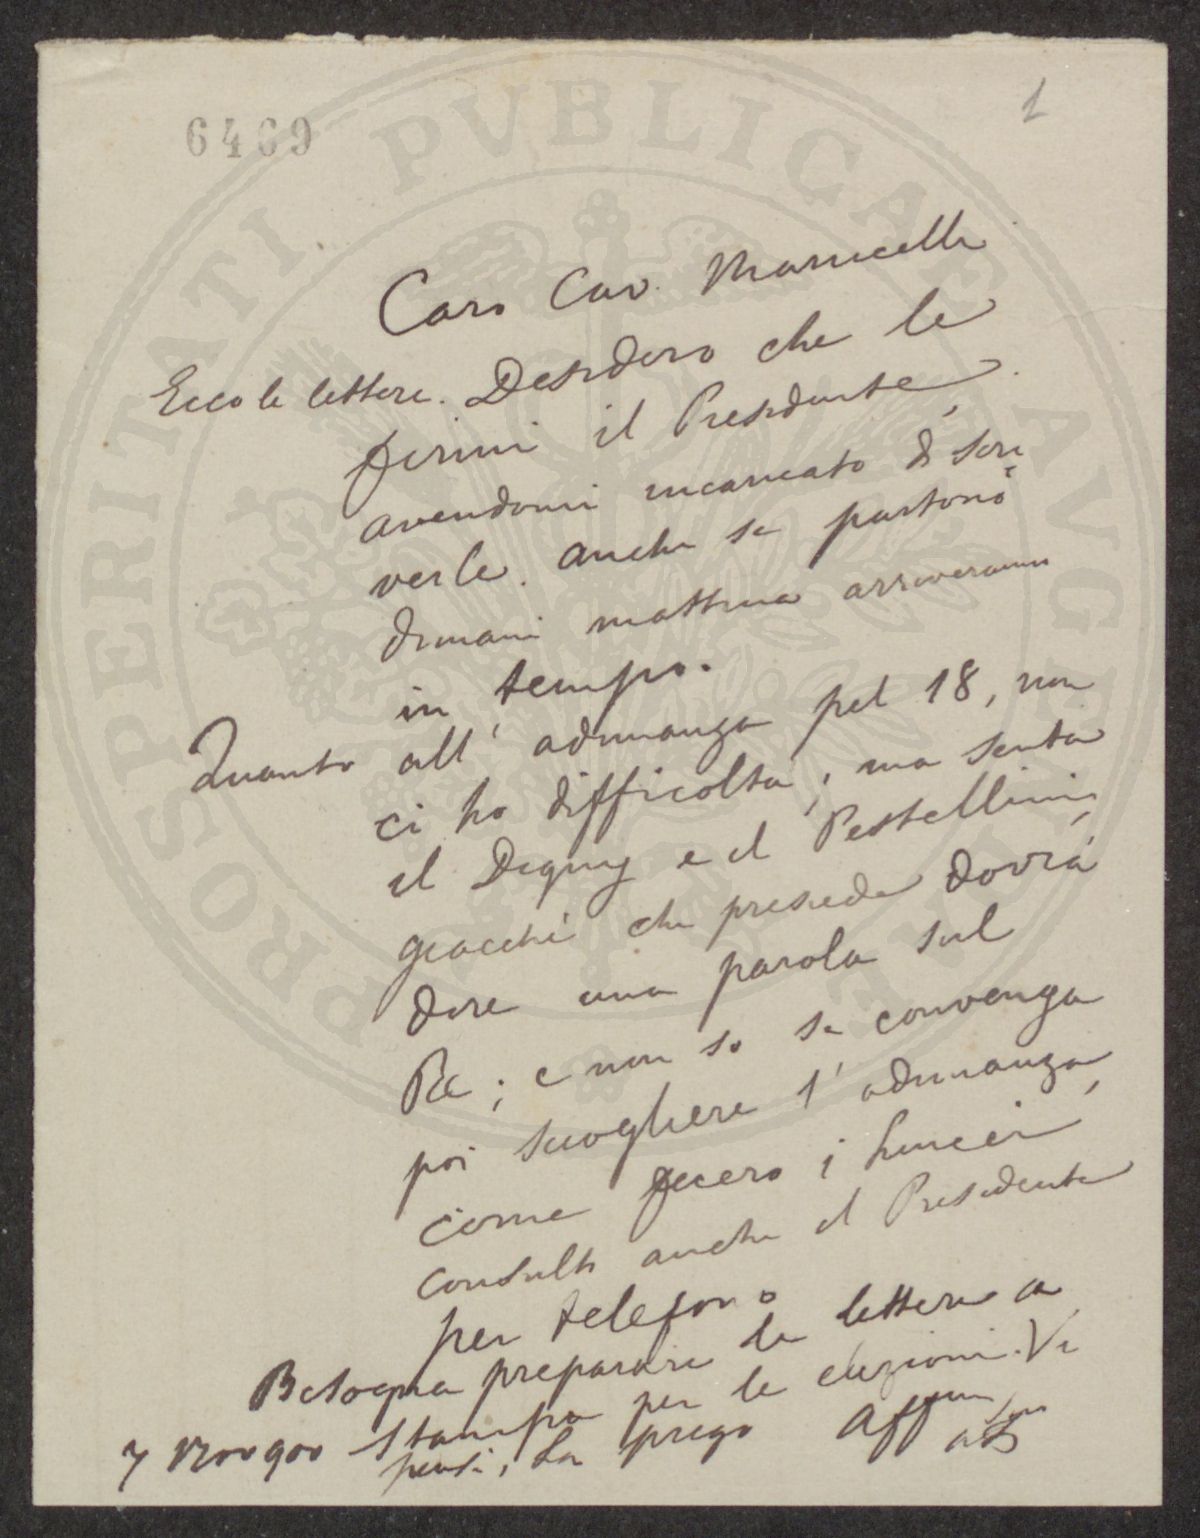 6469
1
Caro Cav. Marucelli
Ecco le lettere. Desidero che le
firmi il Presidente,
avendomi incaricato di scri
verle. anche se partono
domani mattina arriveranno
in tempo.
Quanto all' adunanza pel 18, non
ci ho difficoltà; ma senta
il Digny e il Pestellini,
giacchè chi presiede dovrà
dire una parola sul
Re; e non so se convenga
poi sciogliere l' adunanza,
come fecero i Lincei,
Consulti anche il Presidente
per telefono
Bisogna preparare le lettere a
stampa per le elezioni. Vi
pensi, La prego Aff
7 900
PROSPERITATI PVBLICAE AVGENDAE